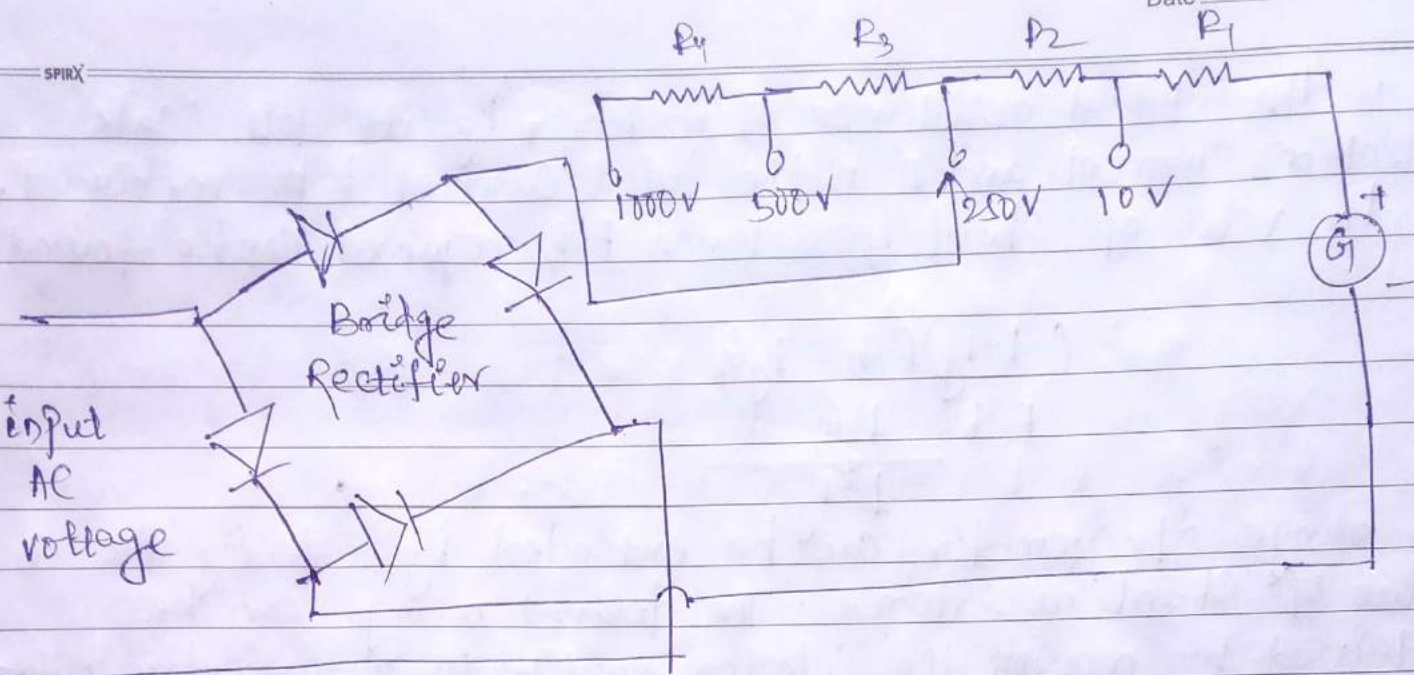 Date
SPIRX
R4 R3 R2 R1
1000V 500V 250V 10V
+
G
-
Bridge
Rectifier
input
AC
voltage